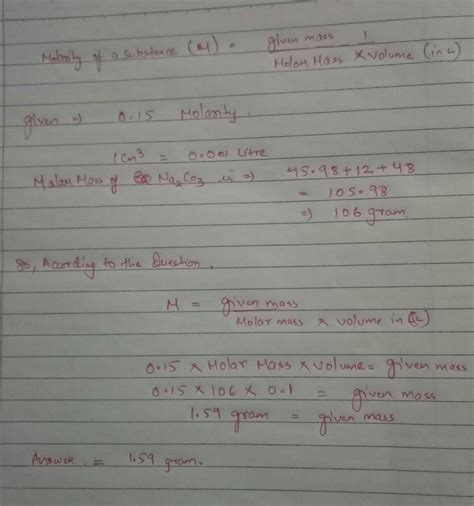 Molarity of a substance (M) = given mass 1
Molar Mass × volume (in L)
given ⇒ 0.15 Molarity.
1 cm³ = 0.001 litre
Molar Mass of Na₂CO₃ is ⇒ 45.98+12+48
= 105.98
⇒ 106 gram
So, According to the Question,
M = given mass
Molar mass × volume in (L)
0.15 × Molar Mass × volume = given mass
0.15 × 106 × 0.1 = given mass
1.59 gram = given mass
Answer. = 1.59 gram.